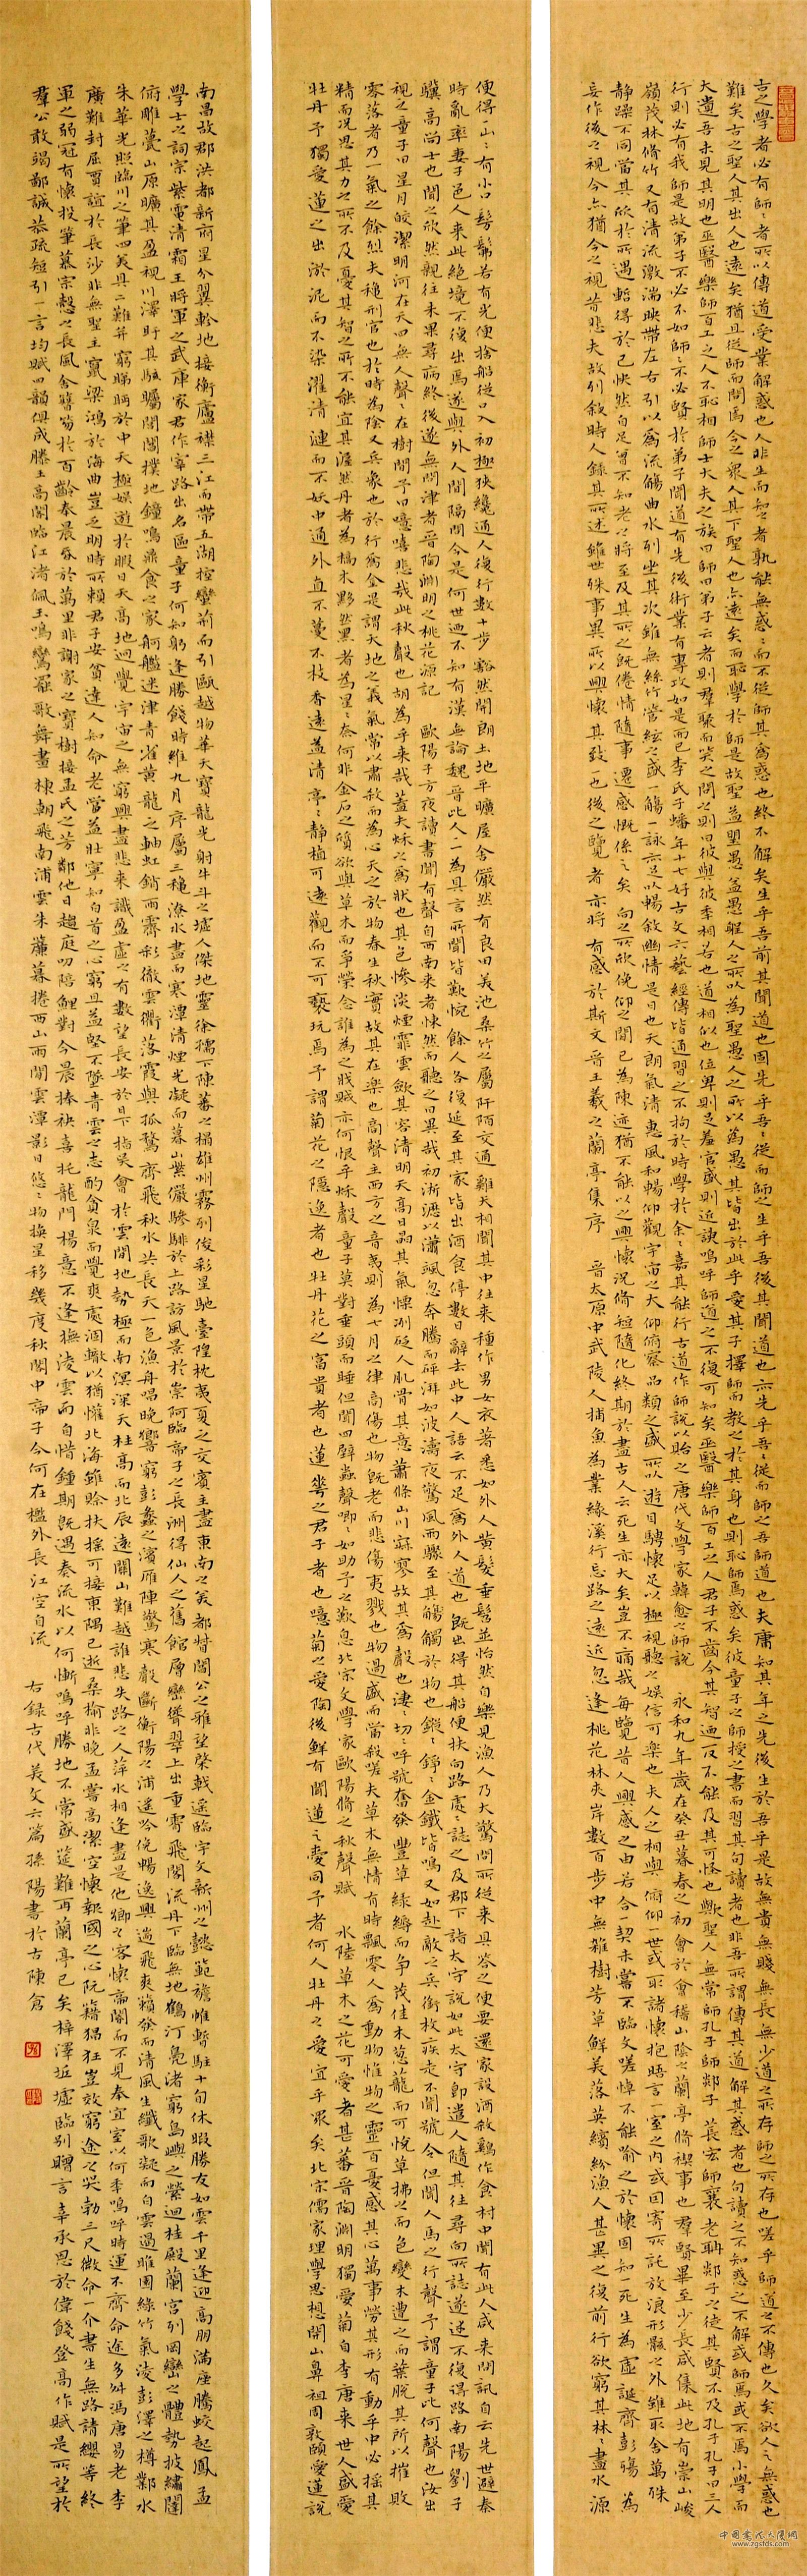 古之學者必有師師者所以傳道受業解惑也人非生而知之者孰能無惑惑而不從師其為惑也終不解矣生乎吾前其聞道也固先乎吾吾從而師之生乎吾後其聞道也亦先乎吾吾從而師之吾師道也夫庸知其年之先後生於吾乎是故無貴無賤無長無少道之所存師之所存也嗟乎師道之不傳也久矣欲人之無惑也
難矣古之聖人其出人也遠矣猶且從師而問焉今之眾人其下聖人也亦遠矣而恥學於師是故聖益聖愚益愚聖人之所以為聖愚人之所以為愚其皆出於此乎愛其子擇師而教之於其身也則恥師焉惑矣彼童子之師授之書而習其句讀者也非吾所謂傳其道解其惑者也句讀之不知惑之不解或師焉或不焉小學而
大遺吾未見其明也巫醫樂師百工之人不恥相師士大夫之族曰師曰弟子云者則羣聚而笑之問之則曰彼與彼年相若也道相似也位卑則足羞官盛則近諛嗚呼師道之不復可知矣巫醫樂師百工之人君子不齒今其智乃反不能及其可怪也歟聖人無常師孔子師郯子萇宏師襄老聃郯子之徒其賢不及孔子孔子曰三人
行則必有我師是故弟子不必不如師師不必賢於弟子聞道有先後術業有專攻如是而已李氏子蟠年十七好古文六藝經傳皆通習之不拘於時學於余余嘉其能行古道作師說以貽之唐代文學家韓愈之師說 永和九年歲在癸丑暮春之初會於會稽山陰之蘭亭脩禊事也羣賢畢至少長咸集此地有崇山峻
嶺茂林脩竹又有清流激湍映帶左右引以為流觴曲水列坐其次雖無絲竹管絃之盛一觴一詠亦足以暢敘幽情是日也天朗氣清惠風和暢仰觀宇宙之大俯察品類之盛所以遊目騁懷足以極視聽之娛信可樂也夫人之相與俯仰一世或取諸懷抱晤言一室之內或因寄所託放浪形骸之外雖取舍萬殊
靜躁不同當其欣於所遇暫得於己怏然自足曾不知老之將至及其所之既倦情隨事遷感慨係之矣向之所欣俛仰之間已為陳迹猶不能不以之興懷況脩短隨化終期於盡古人云死生亦大矣豈不痛哉每覽昔人興感之由若合一契未嘗不臨文嗟悼不能喻之於懷固知一死生為虛誕齊彭殤為
妄作後之視今亦猶今之視昔悲夫故列敘時人錄其所述雖世殊事異所以興懷其致一也後之覽者亦將有感於斯文晉王羲之蘭亭集序 晉太原中武陵人捕魚為業緣溪行忘路之遠近忽逢桃花林夾岸數百步中無雜樹芳草鮮美落英繽紛漁人甚異之復前行欲窮其林林盡水源
便得一山山有小口髣髴若有光便捨船從口入初極狹纔通人復行數十步豁然開朗土地平曠屋舍儼然有良田美池桑竹之屬阡陌交通雞犬相聞其中往來種作男女衣著悉如外人黃髮垂髫並怡然自樂見漁人乃大驚問所從來具答之便要還家設酒殺雞作食村中聞有此人咸來問訊自云先世避秦
時亂率妻子邑人來此絕境不復出焉遂與外人間隔問今是何世迺不知有漢無論魏晉此人一一為具言所聞皆歎惋餘人各復延至其家皆出酒食停數日辭去此中人語云不足為外人道也既出得其船便扶向路處處誌之及郡下詣太守說如此太守即遣人隨其往尋向所誌遂迷不復得路南陽劉子
驥高尚士也聞之欣然親往未果尋病終後遂無問津者晉陶淵明之桃花源記 歐陽子方夜讀書聞有聲自西南來者悚然而聽之曰異哉初淅瀝以瀟颯忽奔騰而砰湃如波濤夜驚風雨驟至其觸於物也鏦鏦錚錚金鐵皆鳴又如赴敵之兵銜枚疾走不聞號令但聞人馬之行聲予謂童子此何聲也汝出
視之童子曰星月皎潔明河在天四無人聲聲在樹間予曰噫嘻悲哉此秋聲也胡為乎來哉蓋夫秋之為狀也其色慘淡煙霏雲斂其容清明天高日晶其氣慄冽砭人肌骨其意蕭條山川寂寥故其為聲也淒淒切切呼號奮發豐草綠縟而爭茂佳木蔥蘢而可悅草拂之而色變木遭之而葉脫其所以摧敗
零落者乃一氣之餘烈夫秋刑官也於時為陰又兵象也於行為金是謂天地之義氣常以肅殺而為心天之於物春生秋實故其在樂也商聲主西方之音夷則為七月之律商傷也物既老而悲傷夷戮也物過盛而當殺嗟夫草木無情有時飄零人為動物惟物之靈百憂感其心萬事勞其形有動乎中必搖其
精而況思其力之所不及憂其智之所不能宜其渥然丹者為槁木黟然黑者為星星奈何非金石之質欲與草木而爭榮念誰為之戕賊亦何恨乎秋聲童子莫對垂頭而睡但聞四壁蟲聲唧唧如助予之歎息北宋文學家歐陽脩之秋聲賦 水陸草木之花可愛者甚蕃晉陶淵明獨愛菊自李唐來世人盛愛
牡丹予獨愛蓮之出淤泥而不染濯清漣而不妖中通外直不蔓不枝香遠益清亭亭靜植可遠觀而不可褻玩焉予謂菊花之隱逸者也牡丹花之富貴者也蓮花之君子者也噫菊之愛陶後鮮有聞蓮之愛同予者何人牡丹之愛宜乎眾矣北宋儒家理學思想開山鼻祖周敦頤愛蓮說
南昌故郡洪都新府星分翼軫地接衡廬襟三江而帶五湖控蠻荊而引甌越物華天寶龍光射牛斗之墟人傑地靈徐孺下陳蕃之榻雄州霧列俊彩星馳臺隍枕夷夏之交賓主盡東南之美都督閻公之雅望棨戟遙臨宇文新州之懿範襜帷暫駐十旬休暇勝友如雲千里逢迎高朋滿座騰蛟起鳳孟
學士之詞宗紫電清霜王將軍之武庫家君作宰路出名區童子何知躬逢勝餞時維九月序屬三秋潦水盡而寒潭清煙光凝而暮山紫儼驂騑於上路訪風景於崇阿臨帝子之長洲得仙人之舊館層巒聳翠上出重霄飛閣流丹下臨無地鶴汀鳧渚窮島嶼之縈迴桂殿蘭宮列岡巒之體勢披繡闥
俯雕甍山原曠其盈視川澤盱其駭矚閭閻撲地鐘鳴鼎食之家舸艦迷津青雀黃龍之舳虹銷雨霽彩徹雲衢落霞與孤鶩齊飛秋水共長天一色漁舟唱晚響窮彭蠡之濱雁陣驚寒聲斷衡陽之浦遙吟俛暢逸興遄飛爽籟發而清風生纖歌凝而白雲遏睢園綠竹氣凌彭澤之樽鄴水
朱華光照臨川之筆四美具二難并窮睇眄於中天極娛遊於暇日天高地迥覺宇宙之無窮興盡悲來識盈虛之有數望長安於日下指吳會於雲間地勢極而南溟深天柱高而北辰遠關山難越誰悲失路之人萍水相逢盡是他鄉之客懷帝閽而不見奉宣室以何年嗚呼時運不齊命途多舛馮唐易老李
廣難封屈賈誼於長沙非無聖主竄梁鴻於海曲豈乏明時所賴君子安貧達人知命老當益壯寧知白首之心窮且益堅不墜青雲之志酌貪泉而覺爽處涸轍以猶懽北海雖賒扶搖可接東隅已逝桑榆非晚孟嘗高潔空懷報國之心阮籍猖狂豈效窮途之哭勃三尺微命一介書生無路請纓等終
軍之弱冠有懷投筆慕宗慤之長風舍簪笏於百齡奉晨昏於萬里非謝家之寶樹接孟氏之芳鄰他日趨庭叨陪鯉對今晨捧袂喜托龍門楊意不逢撫凌雲而自惜鍾期既遇奏流水以何慚嗚呼勝地不常盛筵難再蘭亭已矣梓澤坵墟臨別贈言幸承恩於偉餞登高作賦是所望於
羣公敢竭鄙誠恭疏短引一言均賦四韻俱成滕王高閣臨江渚佩玉鳴鸞罷歌舞畫棟朝飛南浦雲朱簾暮捲西山雨閒雲潭影日悠悠物換星移幾度秋閣中帝子今何在檻外長江空自流 右錄古代美文六篇孫陽書於古陳倉
中国书法大厦网
www.zgsfds.com